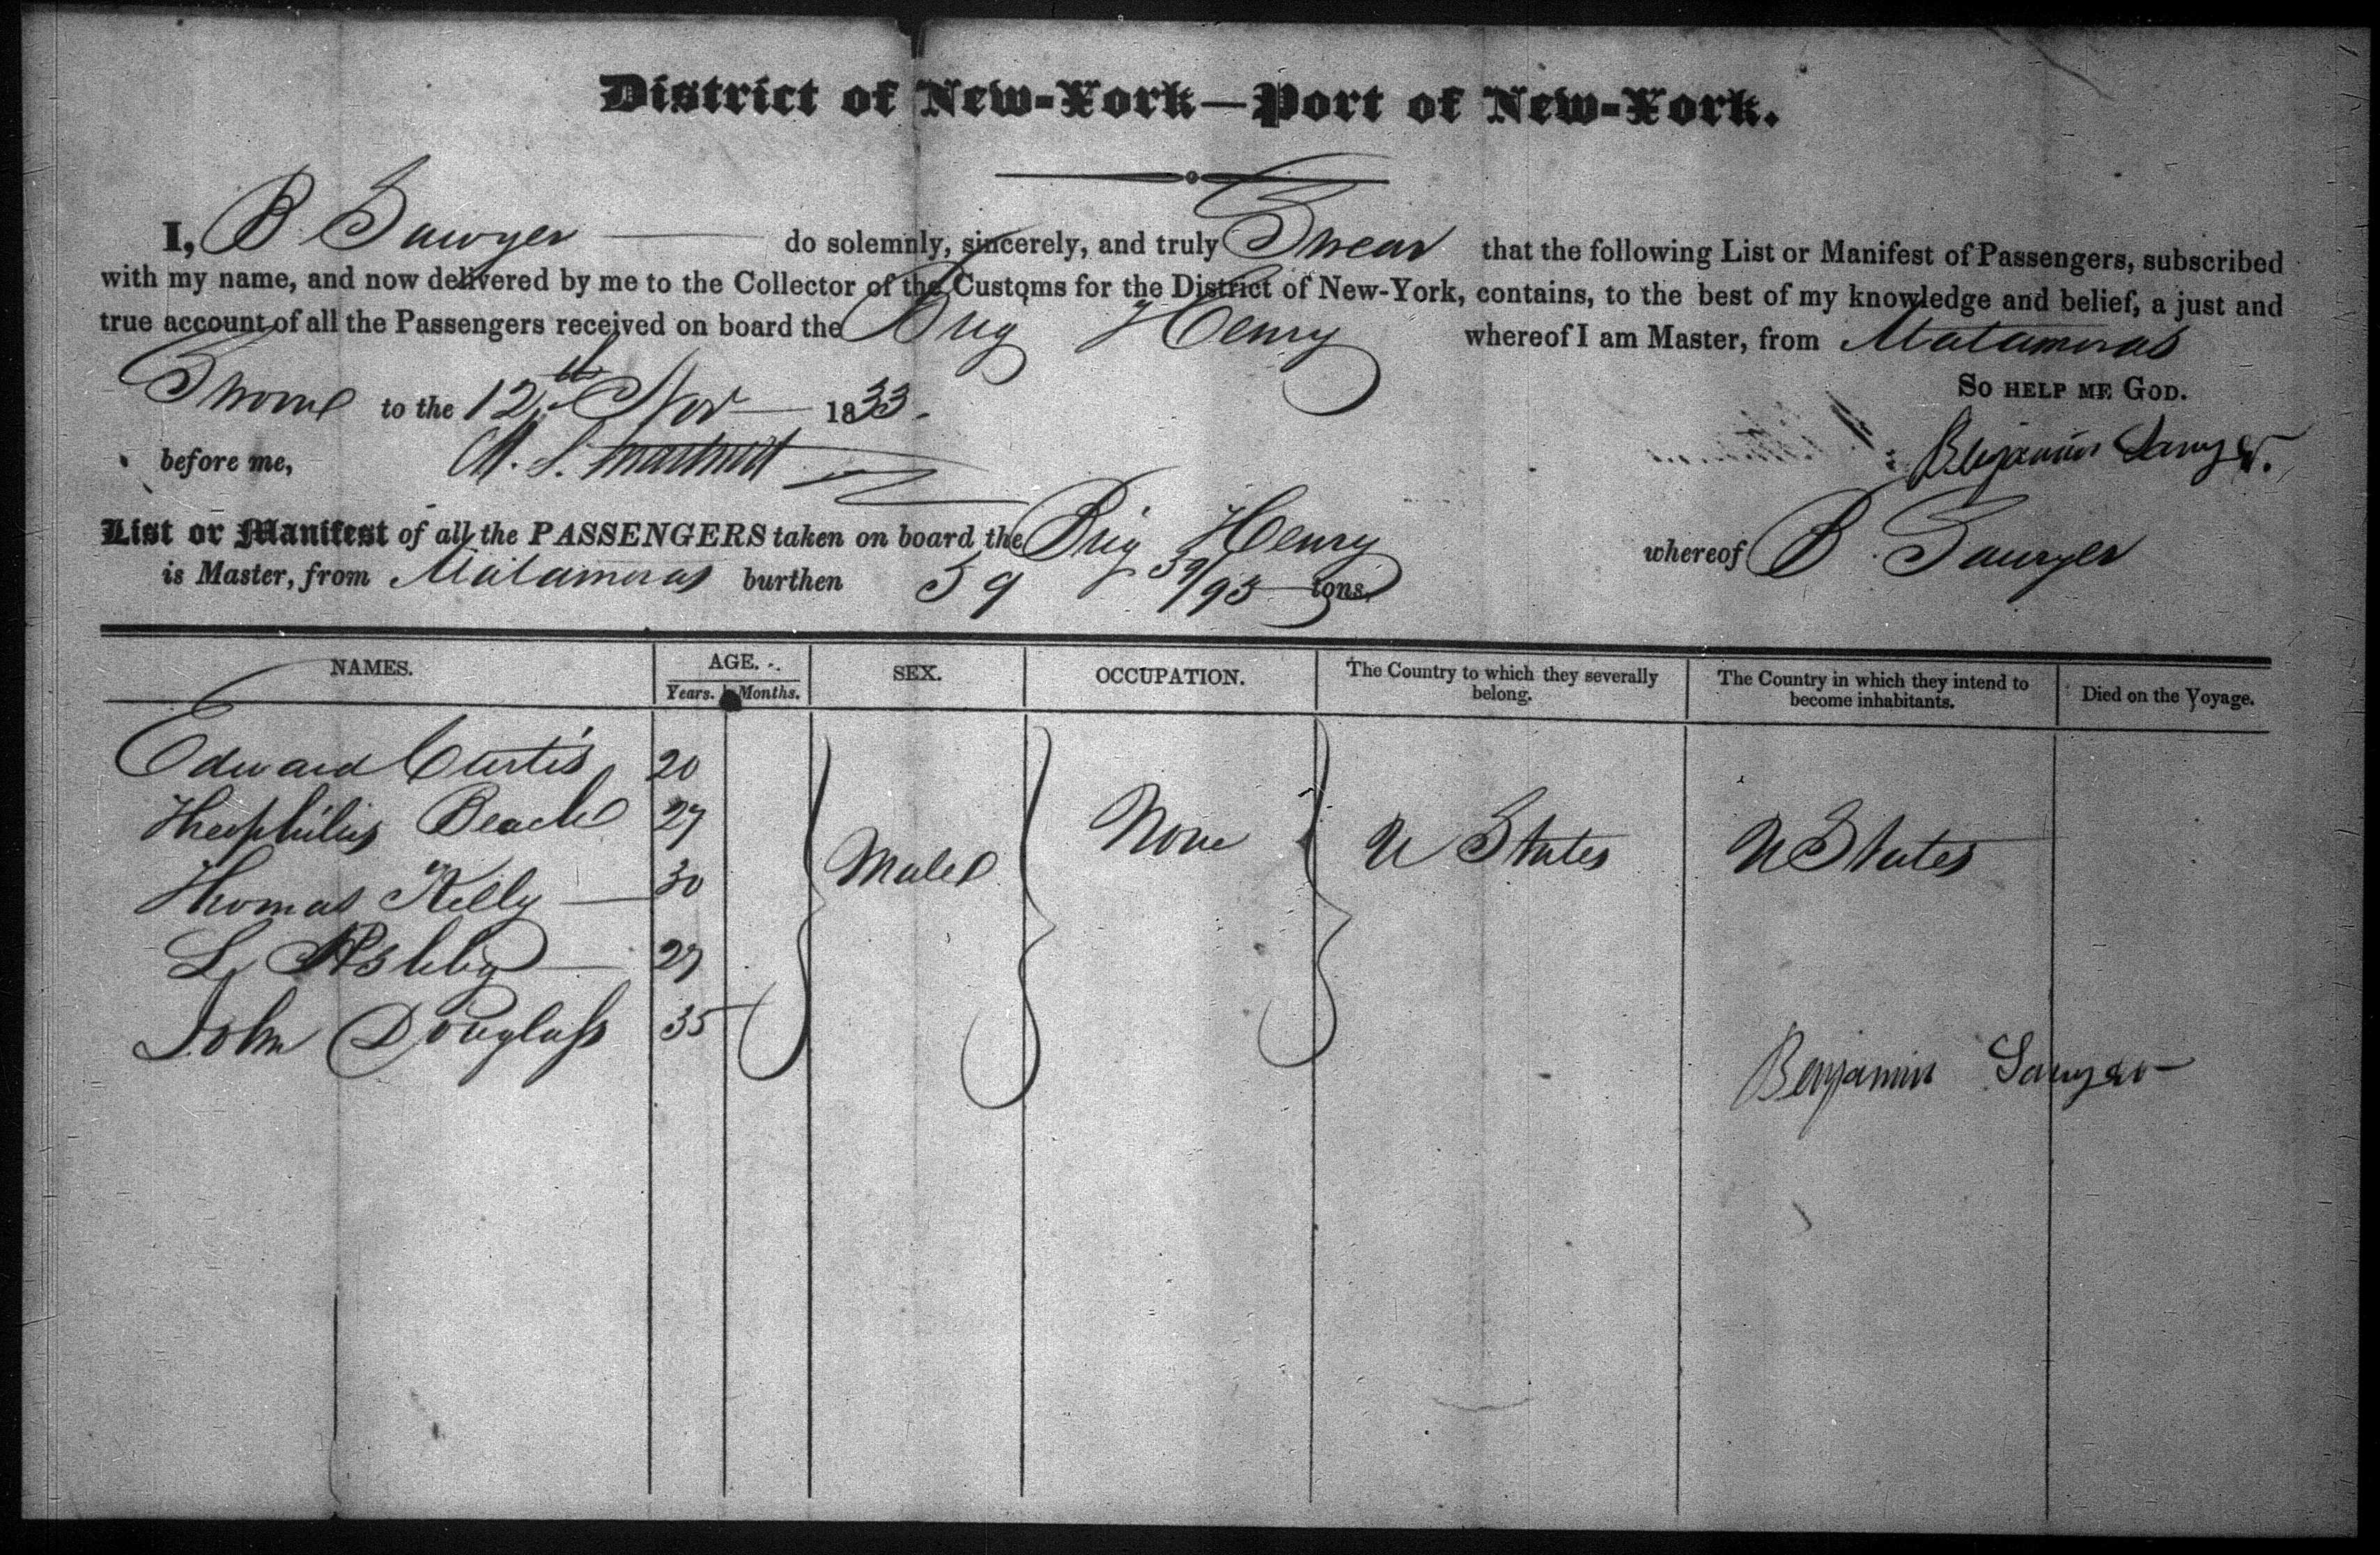 District of New-York—Port of New-York.
I, B. Sawyer do solemnly, sincerely, and truly Swear that the following List or Manifest of Passengers, subscribed
with my name, and now delivered by me to the Collector of the Customs for the District of New-York, contains, to the best of my knowledge and belief, a just and
true account of all the Passengers received on board the Brig Henry whereof I am Master, from Matamoras
So help me God.
Sworn to the 12th Nov 1833.
Benjamin Sawyer.
before me,
List or Manifest of all the PASSENGERS taken on board the Brig Henry whereof B. Sawyer
is Master, from Matamoras burthen 59 39/95 tons.
NAMES. AGE. SEX. OCCUPATION. The Country to which they severally belong. The Country in which they intend to become inhabitants. Died on the Voyage.
Years. Months.
Edward Curtis 20
Theophilus Beach 27
Male None U States U States
Thomas Kelly 30
L. Ashby 27
John Douglass 35
Benjamin Sawyer